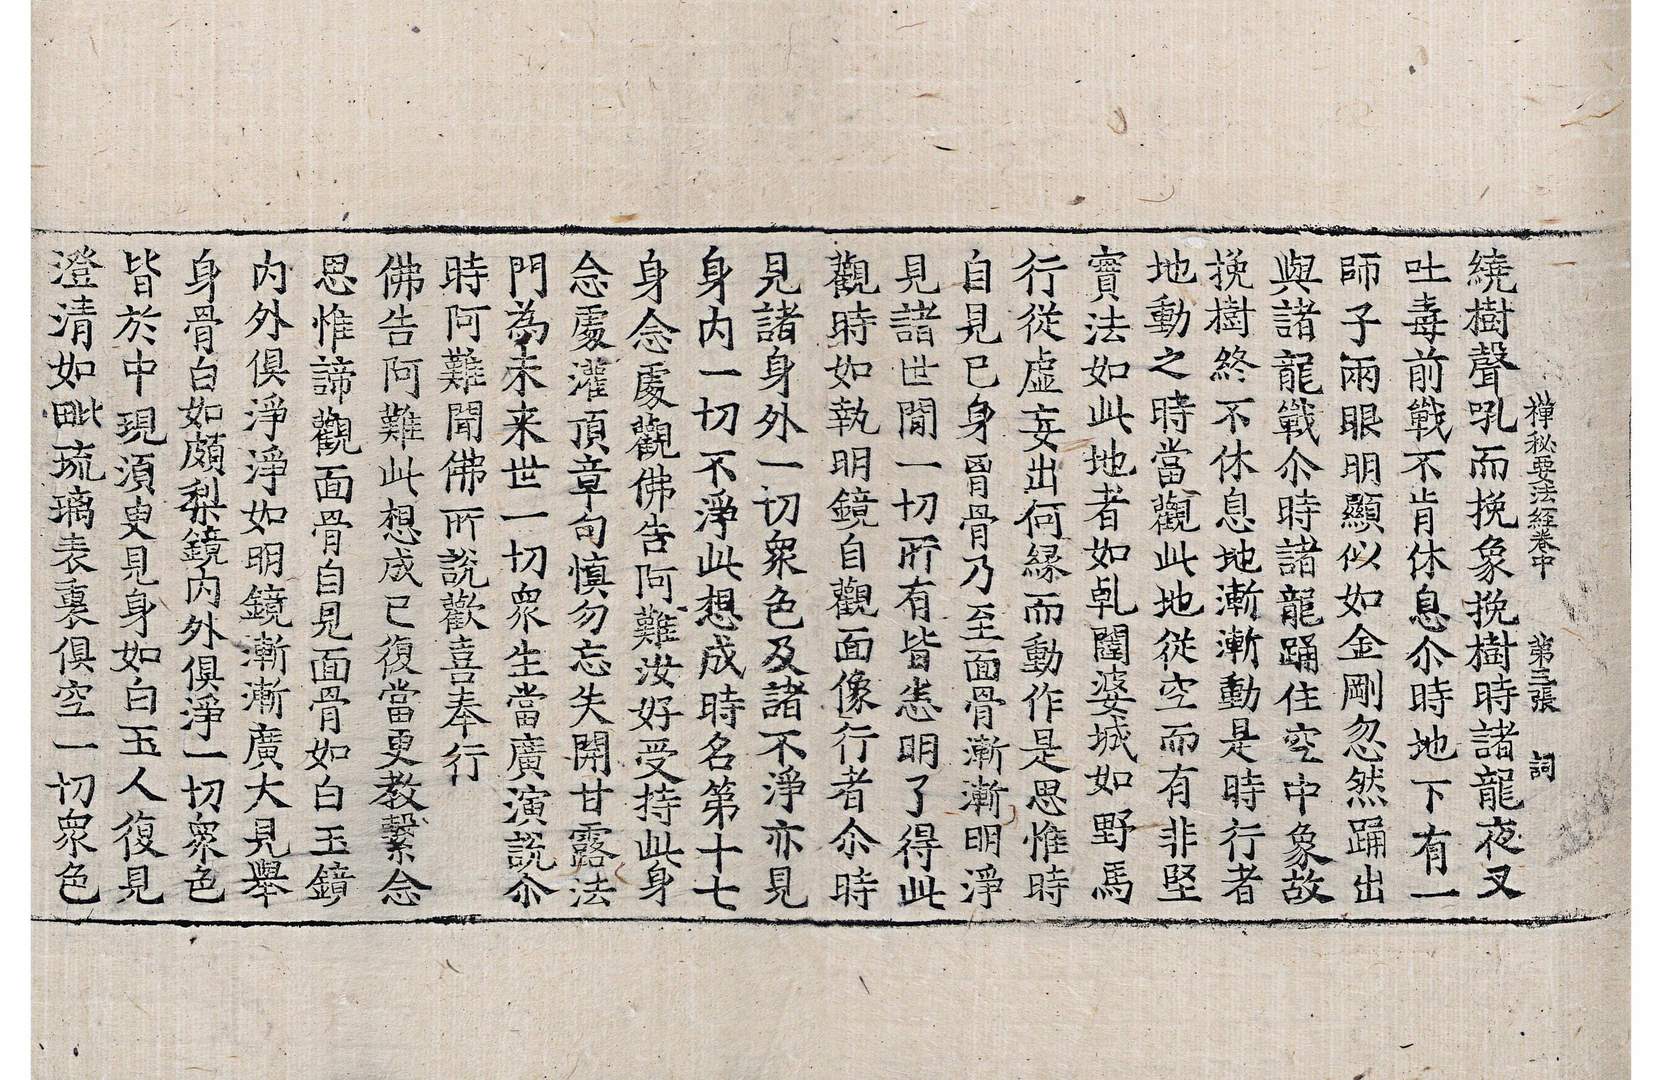 禪秘要法經卷中 第三張 詞
繞樹聲吼而挽象挽樹時諸龍夜叉
吐毒前戰不肯休息尒時地下有一
師子兩眼明顯似如金剛忽然踊出
與諸龍戰尒時諸龍踊住空中象故
挽樹終不休息地漸漸動是時行者
地動之時當觀此地從空而有非堅
實法如此地者如乹闥婆城如野馬
行從虛妄出何緣而動作是思惟時
自見已身胷骨乃至面骨漸漸明淨
見諸世間一切所有皆悉明了得此
觀時如執明鏡自觀面像行者尒時
見諸身外一切衆色及諸不淨亦見
身內一切不淨此想成時名第十七
身念處觀佛告阿難汝好受持此身
念處灌頂章句慎勿忘失開甘露法
門為未来世一切衆生當廣演說尒
時阿難聞佛所說歡喜奉行
佛告阿難此想成已復當更教繫念
思惟諦觀面骨自見面骨如白玉鏡
內外俱淨淨如明鏡漸漸廣大見舉
身骨白如頗梨鏡內外俱淨一切衆色
皆於中現須臾見身如白玉人復見
澄清如毗琉璃表裏俱空一切衆色